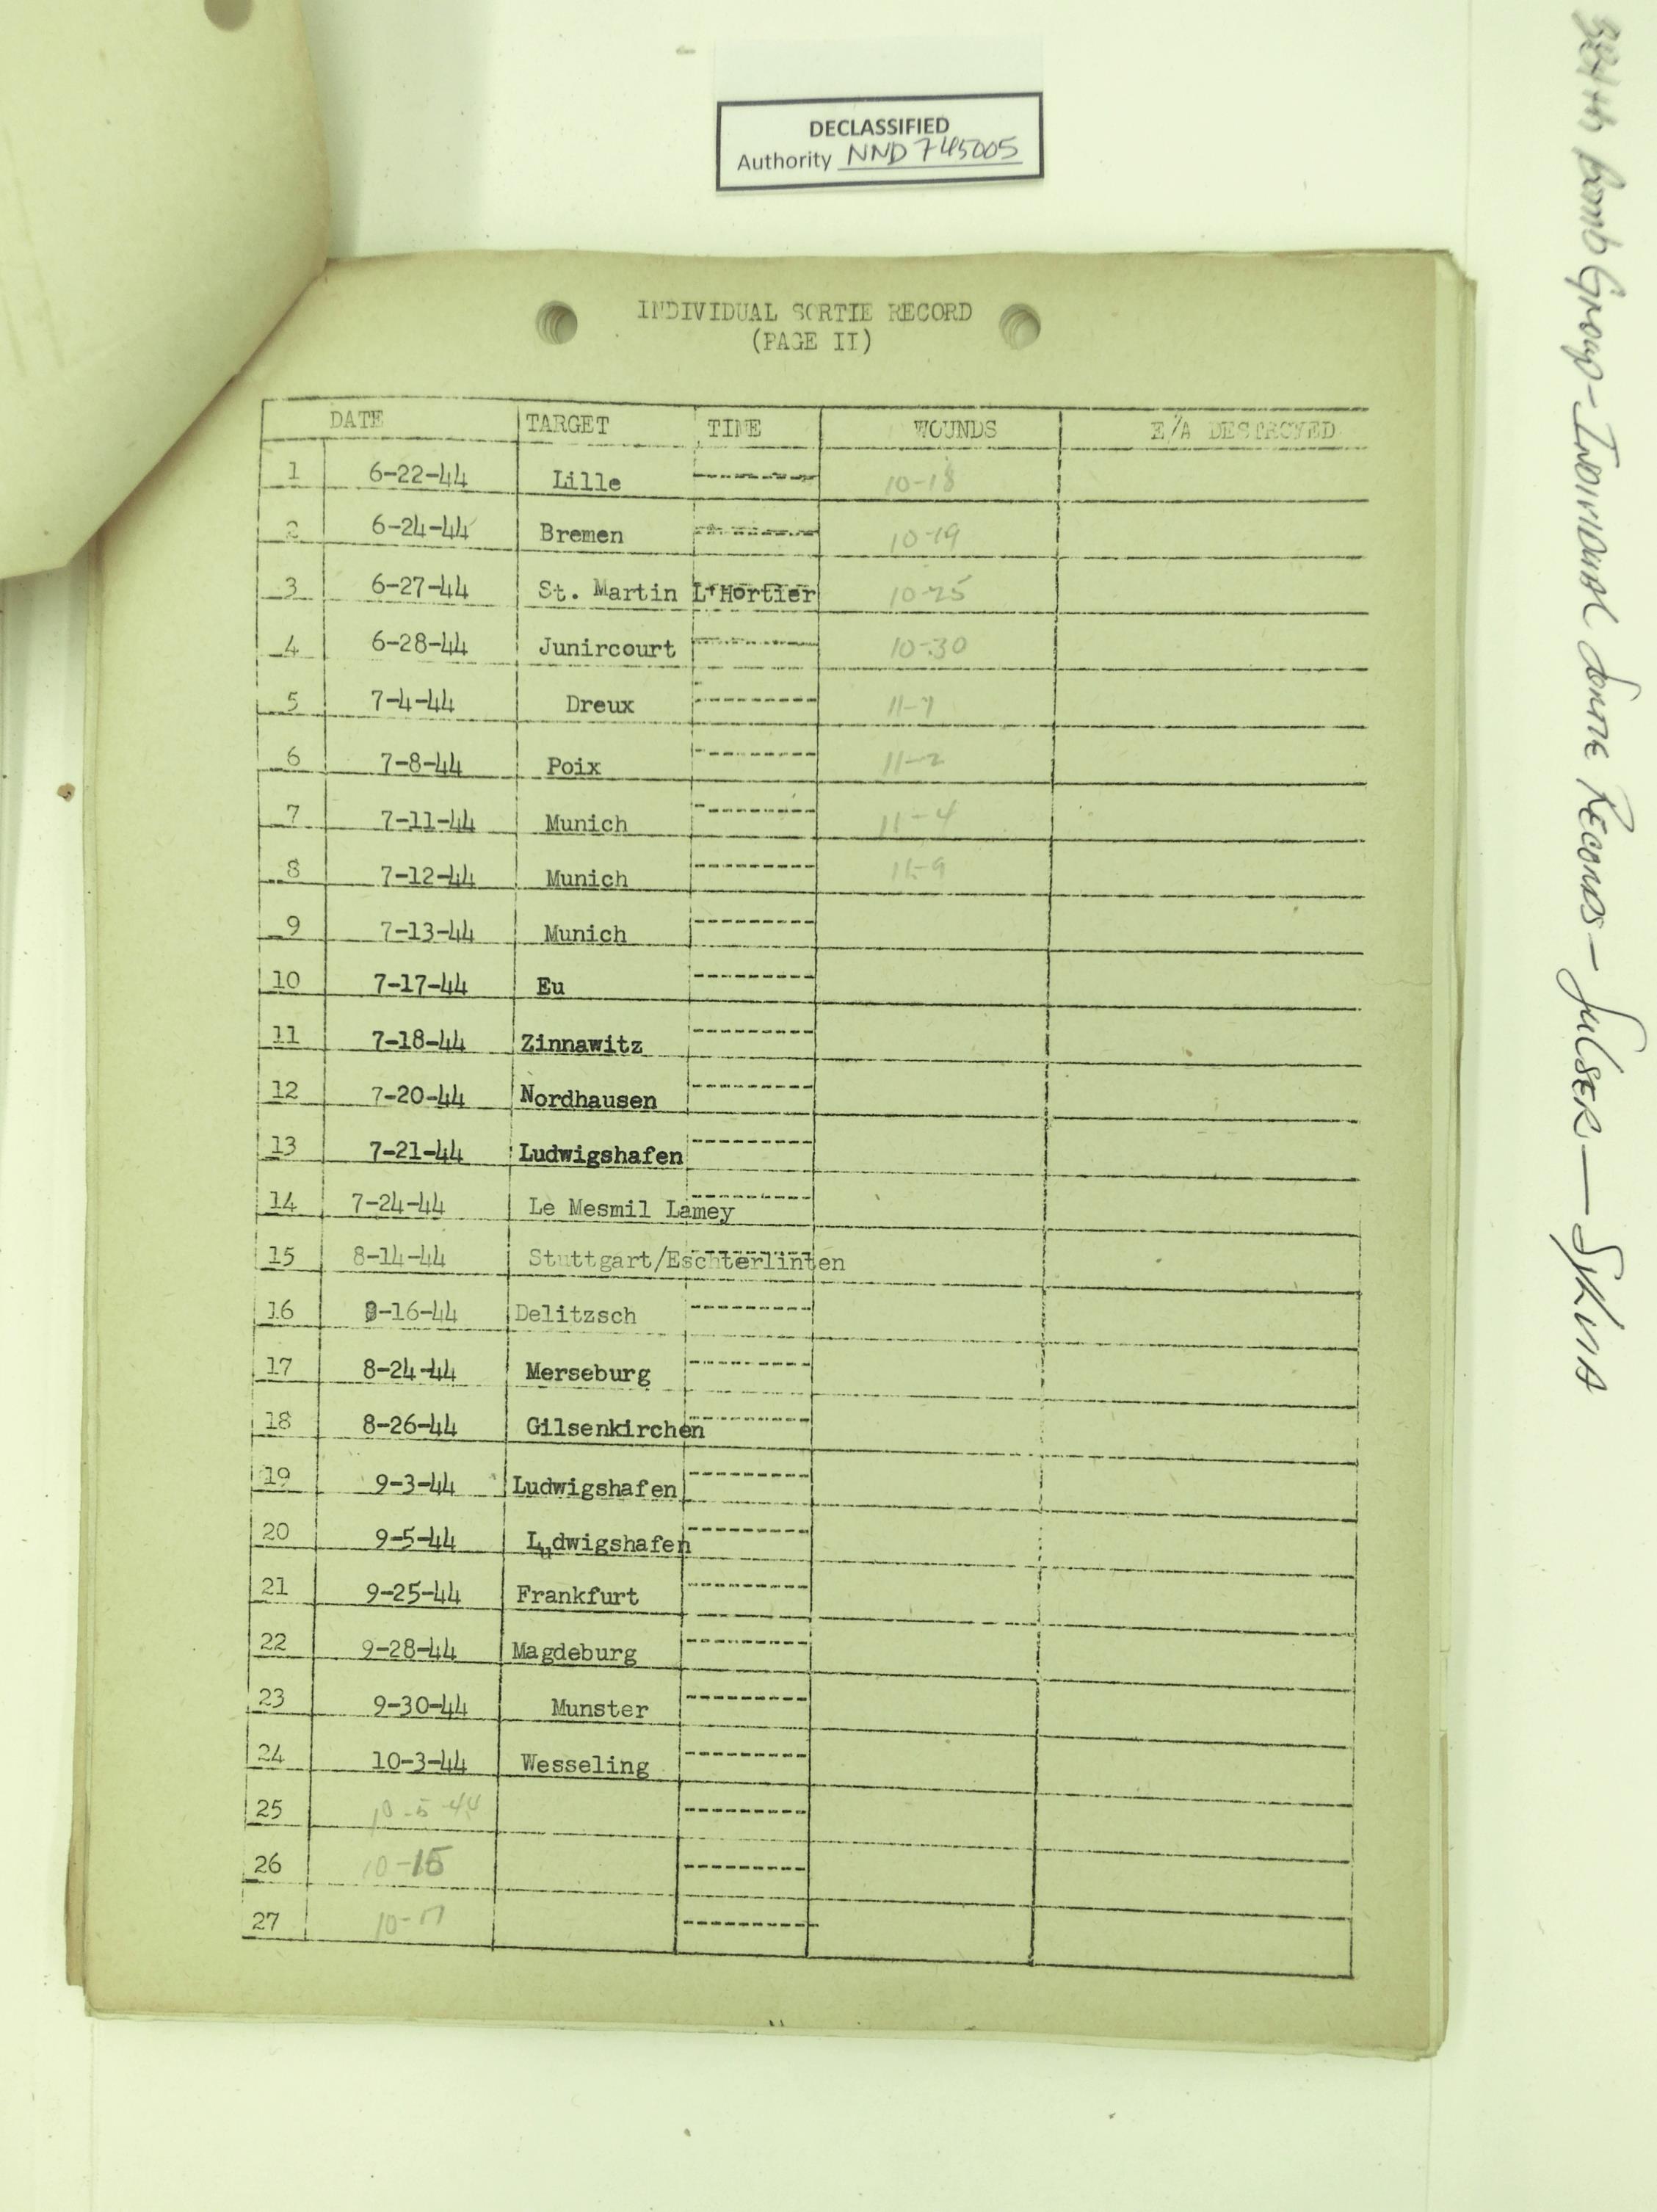 DECLASSIFIED
Authority NND 745005
INDIVIDUAL SORTIE RECORD
(PAGE II)
DATE TARGET TIME WOUNDS E/A DESTROYED
1 6-22-44 Lille --------- 10-18
2 6-24-44 Bremen --------- 10-19
3 6-27-44 St. Martin L'Hortier 10-25
4 6-28-44 Junircourt --------- 10-30
5 7-4-44 Dreux ---------
6 7-8-44 Poix --------- 11-2
7 7-11-44 Munich --------- 11-4
8 7-12-44 Munich --------- 11-9
9 7-13-44 Munich ---------
10 7-17-44 Eu ---------
11 7-18-44 Zinnawitz ---------
12 7-20-44 Nordhausen ---------
13 7-21-44 Ludwigshafen ---------
14 7-24-44 Le Mesmil Lamey ---------
15 8-14-44 Stuttgart/Eschterlinten
16 8-16-44 Delitzsch ---------
17 8-24-44 Merseburg ---------
18 8-26-44 Gilsenkirchen ---------
19 9-3-44 Ludwigshafen ---------
20 9-5-44 Ludwigshafen ---------
21 9-25-44 Frankfurt ---------
22 9-28-44 Magdeburg ---------
23 9-30-44 Munster ---------
24 10-3-44 Wesseling ---------
25 10-5-44 ---------
26 10-15 ---------
27 10-17 ---------
384th Bomb Group - Individual Sortie Records - Sulser - Sykna